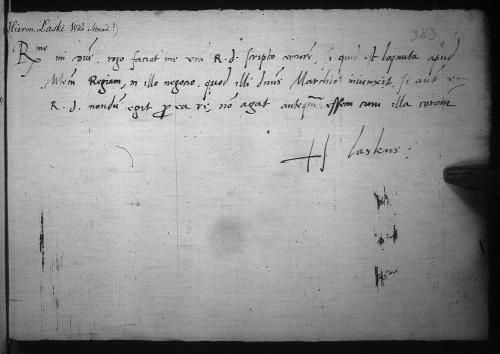 Hieron. Laski Wdi Sirad:
383
Rme mi Dne, rogo faciat me vra R. d. scripto certiorem, si quid est locuta apud
Mtem Regiam, in illo negocio, quod illi dnus Marchio iniunxit, si aut vra
R. d. nondum egit pro ea re, non agat antequam essem cum illa coram
H Laskus: